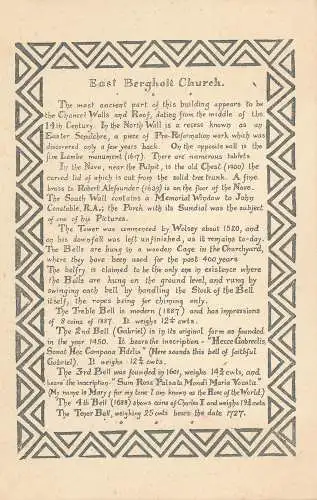 East Bergholt Church.
The most ancient part of this building appears to be
the Chancel Walls and Roof, dating from the middle of the
14th Century. In the North Wall is a recess known as an
Easter Sepulchre, a piece of Pre-Reformation work which was
discovered only a few years back. On the opposite wall is the
fine Lambe monument (1617). There are numerous tablets
In the Nave, near the Pulpit, is the old Chest (1400) the
carved lid of which is cut from the solid tree trunk. A fine
brass to Robert Alefounder (1639) is on the floor of the Nave.
The South Wall contains a Memorial Window to John
Constable, R.A.; the Porch with its Sundial was the subject
of one of his Pictures.
The Tower was commenced by Wolsey about 1520, and
on his downfall was left unfinished, as it remains to-day.
The Bells are hung in a wooden Cage in the Churchyard,
where they have been used for the past 400 years
The belfry is claimed to be the only one in existence where
the Bells are hung on the ground level, and rung by
swinging each bell by handling the Stock of the Bell
itself, the ropes being for chiming only.
The Treble Bell is modern (1887) and has impressions
of 8 coins of 1887. It weighs 12¾ cwts.
The 2nd Bell (Gabriel) is in its original form as founded
in the year 1450. It bears the inscription - "Hecce Gabreelis
Sonat Hec Compana Fidelis" (Here sounds this bell of faithful
Gabriel). It weighs 12¾ cwts.
The 3rd Bell was founded in 1601, weighs 14¾ cwts, and
bears the inscription - "Sum Rosa Pulsata Mondi Maria Vocata"
(My name is Mary; for my tone I am known as the Rose of the World)
The 4th Bell (1688) shows coins of Charles I and weighs 19¾ cwts
The Tenor Bell, weighing 25 cwts bears the date 1727.